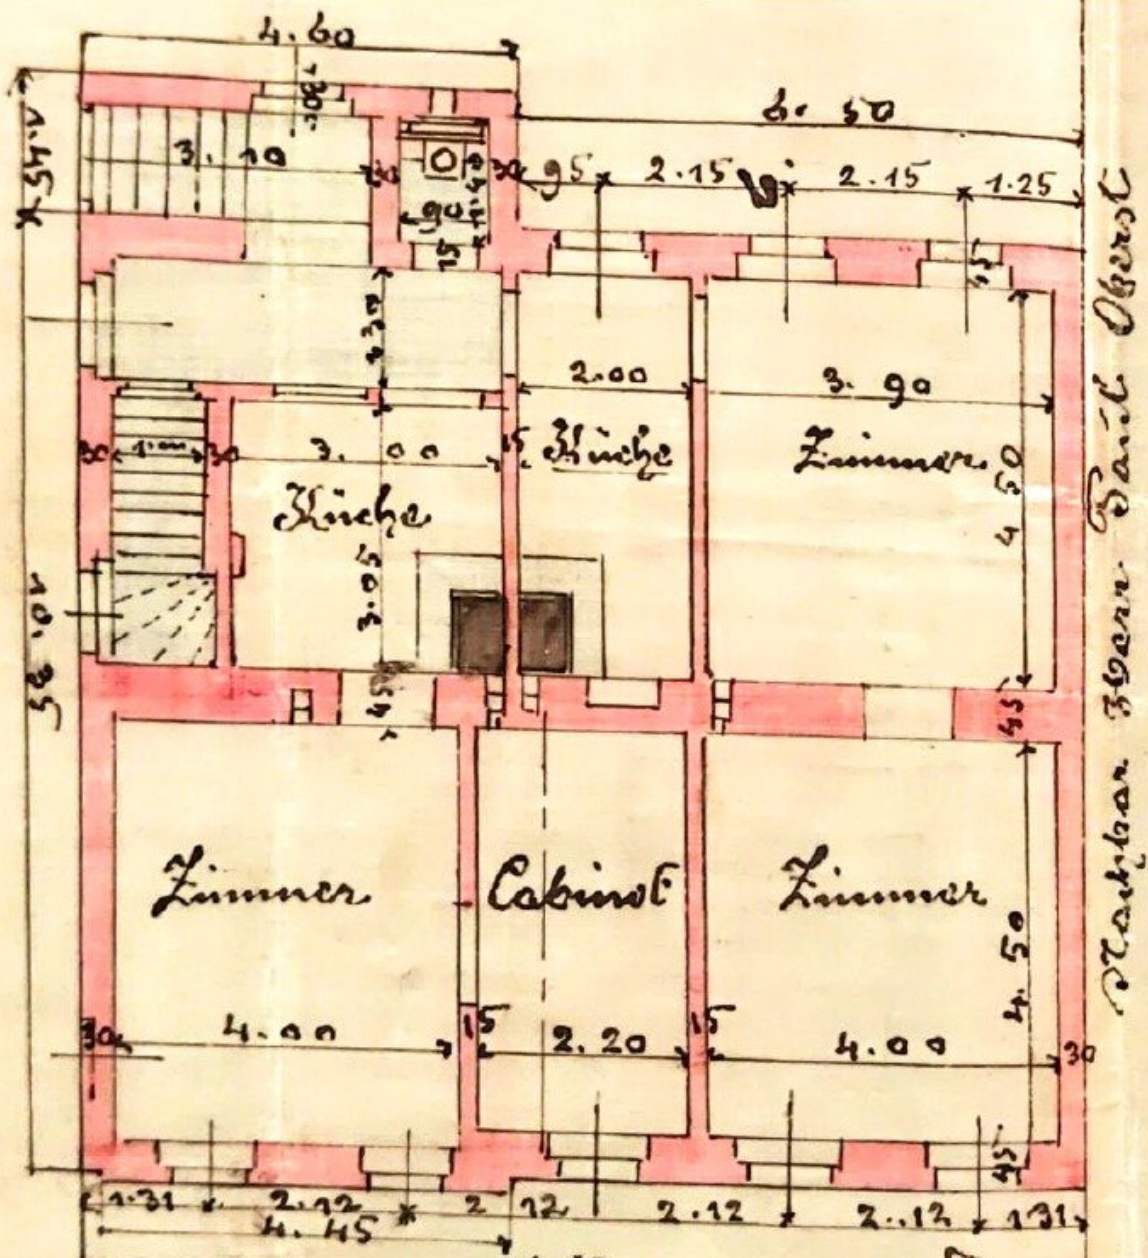 4.60
6.50
3.10
30
30
95
2.15
2.15
1.25
90
15
45
2.00
3.90
30
1.00
30
3.00
15
Küche
Zimmer
4.50
Küche
3.05
10.35
45
45
Zimmer
Cabinet
Zimmer
4.50
30
4.00
15
2.20
15
4.00
30
45
1.31
2.12
2 12
2.12
2.12
1 31
4.45
Nachbar Herr Paul Oberst